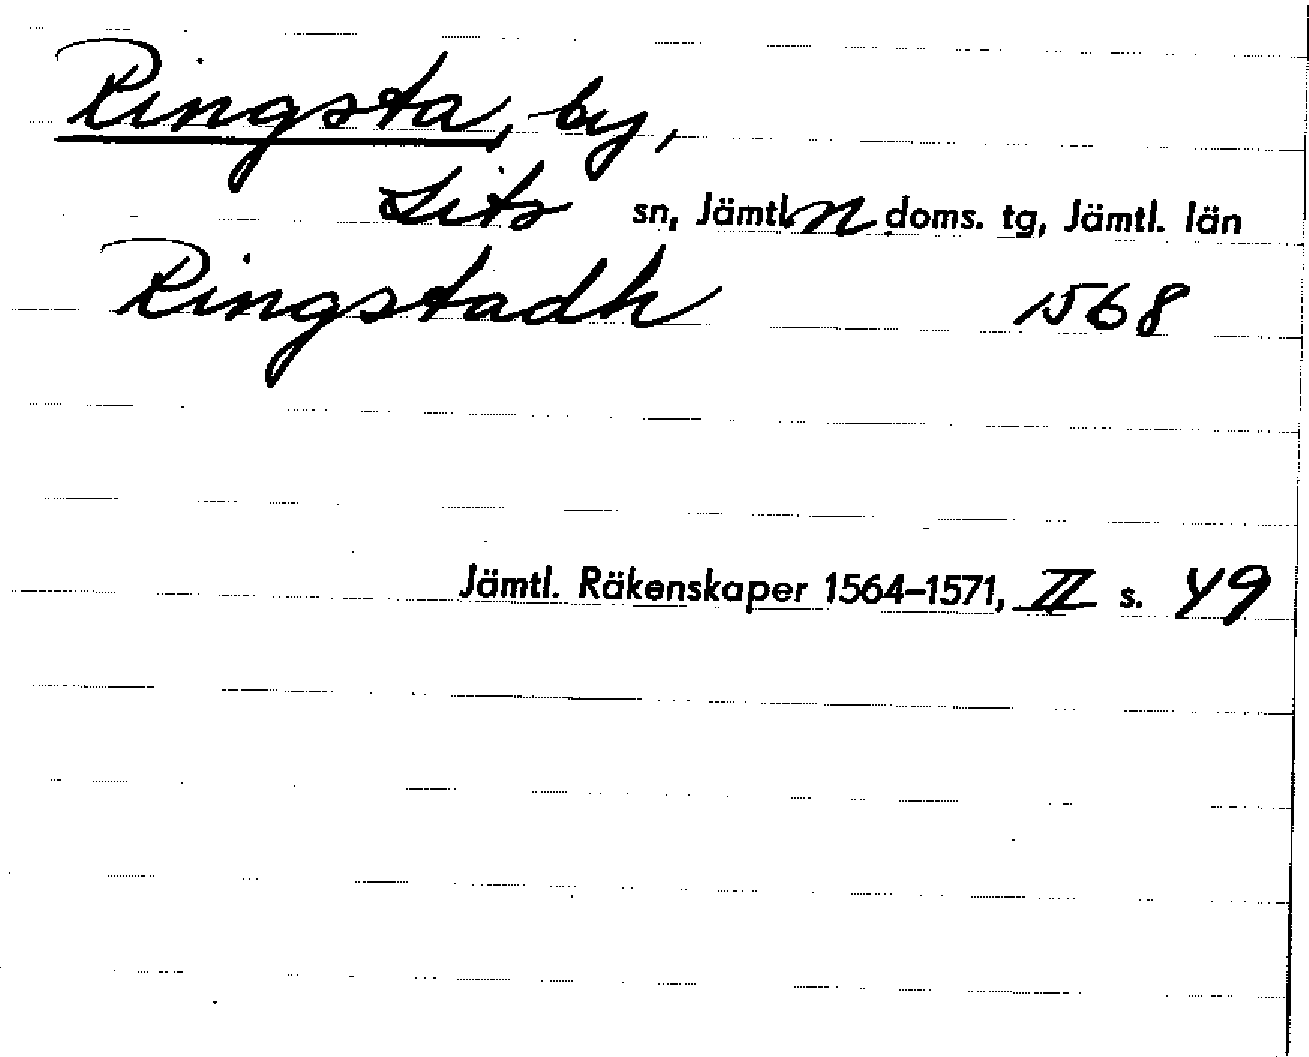 Ringsta, by,
Lits sn, Jämtl. n doms. tg, Jämtl. län
Ringstadh 1568
Jämtl. Räkenskaper 1564–1571, II s. 49